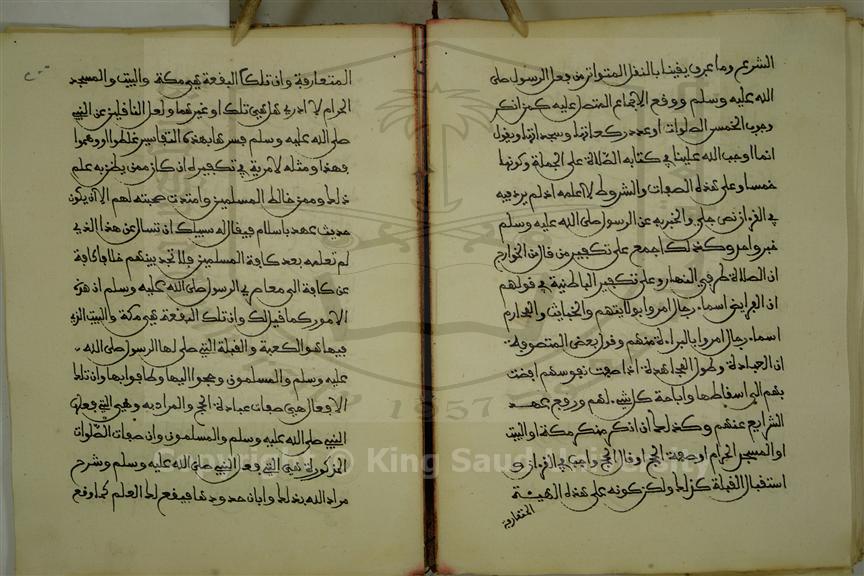 الشرع وما عرف يقينا بالنقل المتواتر من فعل الرسول صلى
الله عليه وسلم ووقع الاجماع المتصل عليه كمن انكر
وجوب الخمس الصلوات او عدد ركعاتها وسجداتها ويقول
انما اوجب الله علينا في كتابه الصلاة على الجملة وكونها
خمسا وعلى هذه الصفات والشروط لا اعلمه اذ لم يرد فيه
في القرآن نص جلي والخبر به عن الرسول صلى الله عليه وسلم
خبر واحد وكذلك اجمع على تكفير من قال من الخوارج
ان الصلاة طرفي النهار وعلى تكفير الباطنية في قولهم
ان الفرايض اسماء رجال امروا بولايتهم والخبايث والمحارم
اسماء رجال امروا بالبراءة منهم وقول بعض المتصوفة
ان العبادة وطول المجاهدة اذا صفت نفوسهم افضت
بهم الى اسقاطها واباحة كل شيء لهم ورفع عهد
الشرايع عنهم وكذلك ان انكر منكر مكة او البيت
او المسجد الحرام او صفة الحج او قال الحج واجب في القرآن و
استقبال القبلة كذلك ولكن كونه على هذه الهيئة
المتعارفة
المتعارفة وان تلك البقعة هي مكة والبيت والمسجد
الحرام لا ادري هل هي تلك او غيرها ولعل الناقلين عن النبي
صلى الله عليه وسلم فسرها بهذه التفاسير غلطوا او وهموا
فهذا ومثله لا مرية في تكفيره ان كان ممن يظن به علم
ذلك وممن خالط المسلمين وامتدت صحبته لهم الا ان يكون
حديث عهد باسلام فيقال له سبيلك ان تسأل عن هذا الذي
لم تعلمه بعد كافة المسلمين فلا تجد بينهم خلافا كافة
عن كافة الى معاصري الرسول صلى الله عليه وسلم ان هذه
الامور كما قيل لك وان تلك البقعة هي مكة والبيت الذي
فيها هو الكعبة والقبلة التي صلى لها الرسول صلى الله
عليه وسلم والمسلمون وحجوا اليها وطافوا بها وان تلك
الافعال هي صفات عبادة الحج والمراد به وهي التي فعلها
النبي صلى الله عليه وسلم والمسلمون وان صفات الصلوات
المذكورة هي التي فعل النبي صلى الله عليه وسلم وشرح
مراد الله بذلك وابان حدودها فيقع لك العلم كما وقع
1957
Copyright © King Saud University